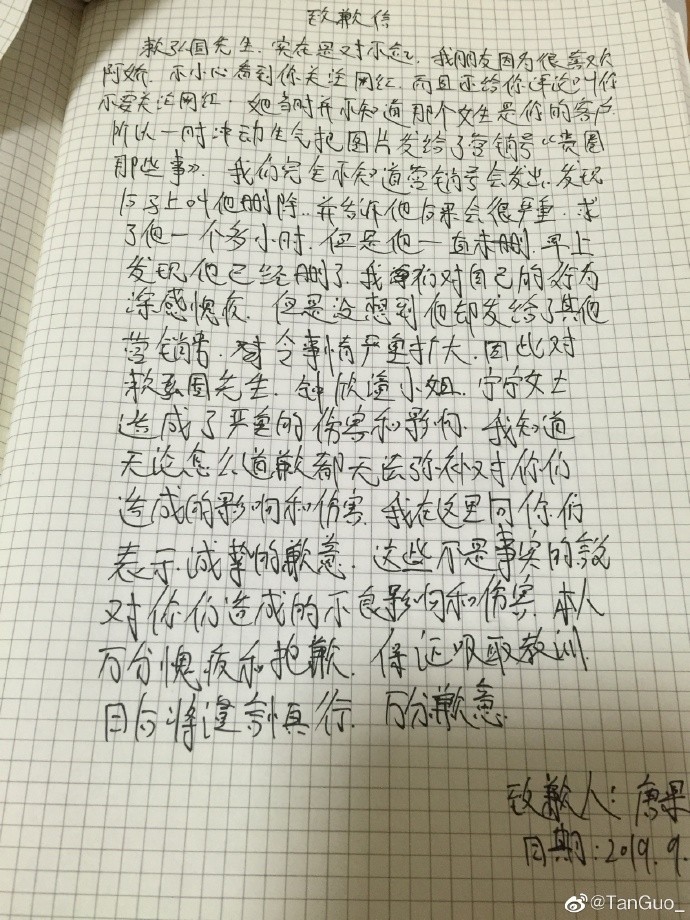 致歉信
赖弘国先生，实在是对不起，我朋友因为很喜欢
阿娇，不小心看到你关注网红，而且还给你评论叫你
不要关注网红。她当时并不知道那个女生是你的客户
所以一时冲动生气把图片发给了营销号《贵圈
那些事》。我们完全不知道营销号会发出，发现
后马上叫他删除，并告诉他后果会很严重，求
了他一个多小时，但是他一直未删，早上
发现他已经删了，我们对自己的行为
深感愧疚，但是没想到他却发给了其他
营销号，令事情严重扩大，因此对
赖弘国先生，钟欣潼小姐，宁宁女士
造成了严重的伤害和影响，我知道
无论怎么道歉都无法弥补对你们
造成的影响和伤害，我在这里向你们
表示诚挚的歉意，这些不是事实的
对你们造成的不良影响和伤害，本人
万分愧疚和抱歉，保证吸取教训，
日后将谨言慎行，万分歉意。
致歉人：唐果
日期：2019.9.
@TanGuo_